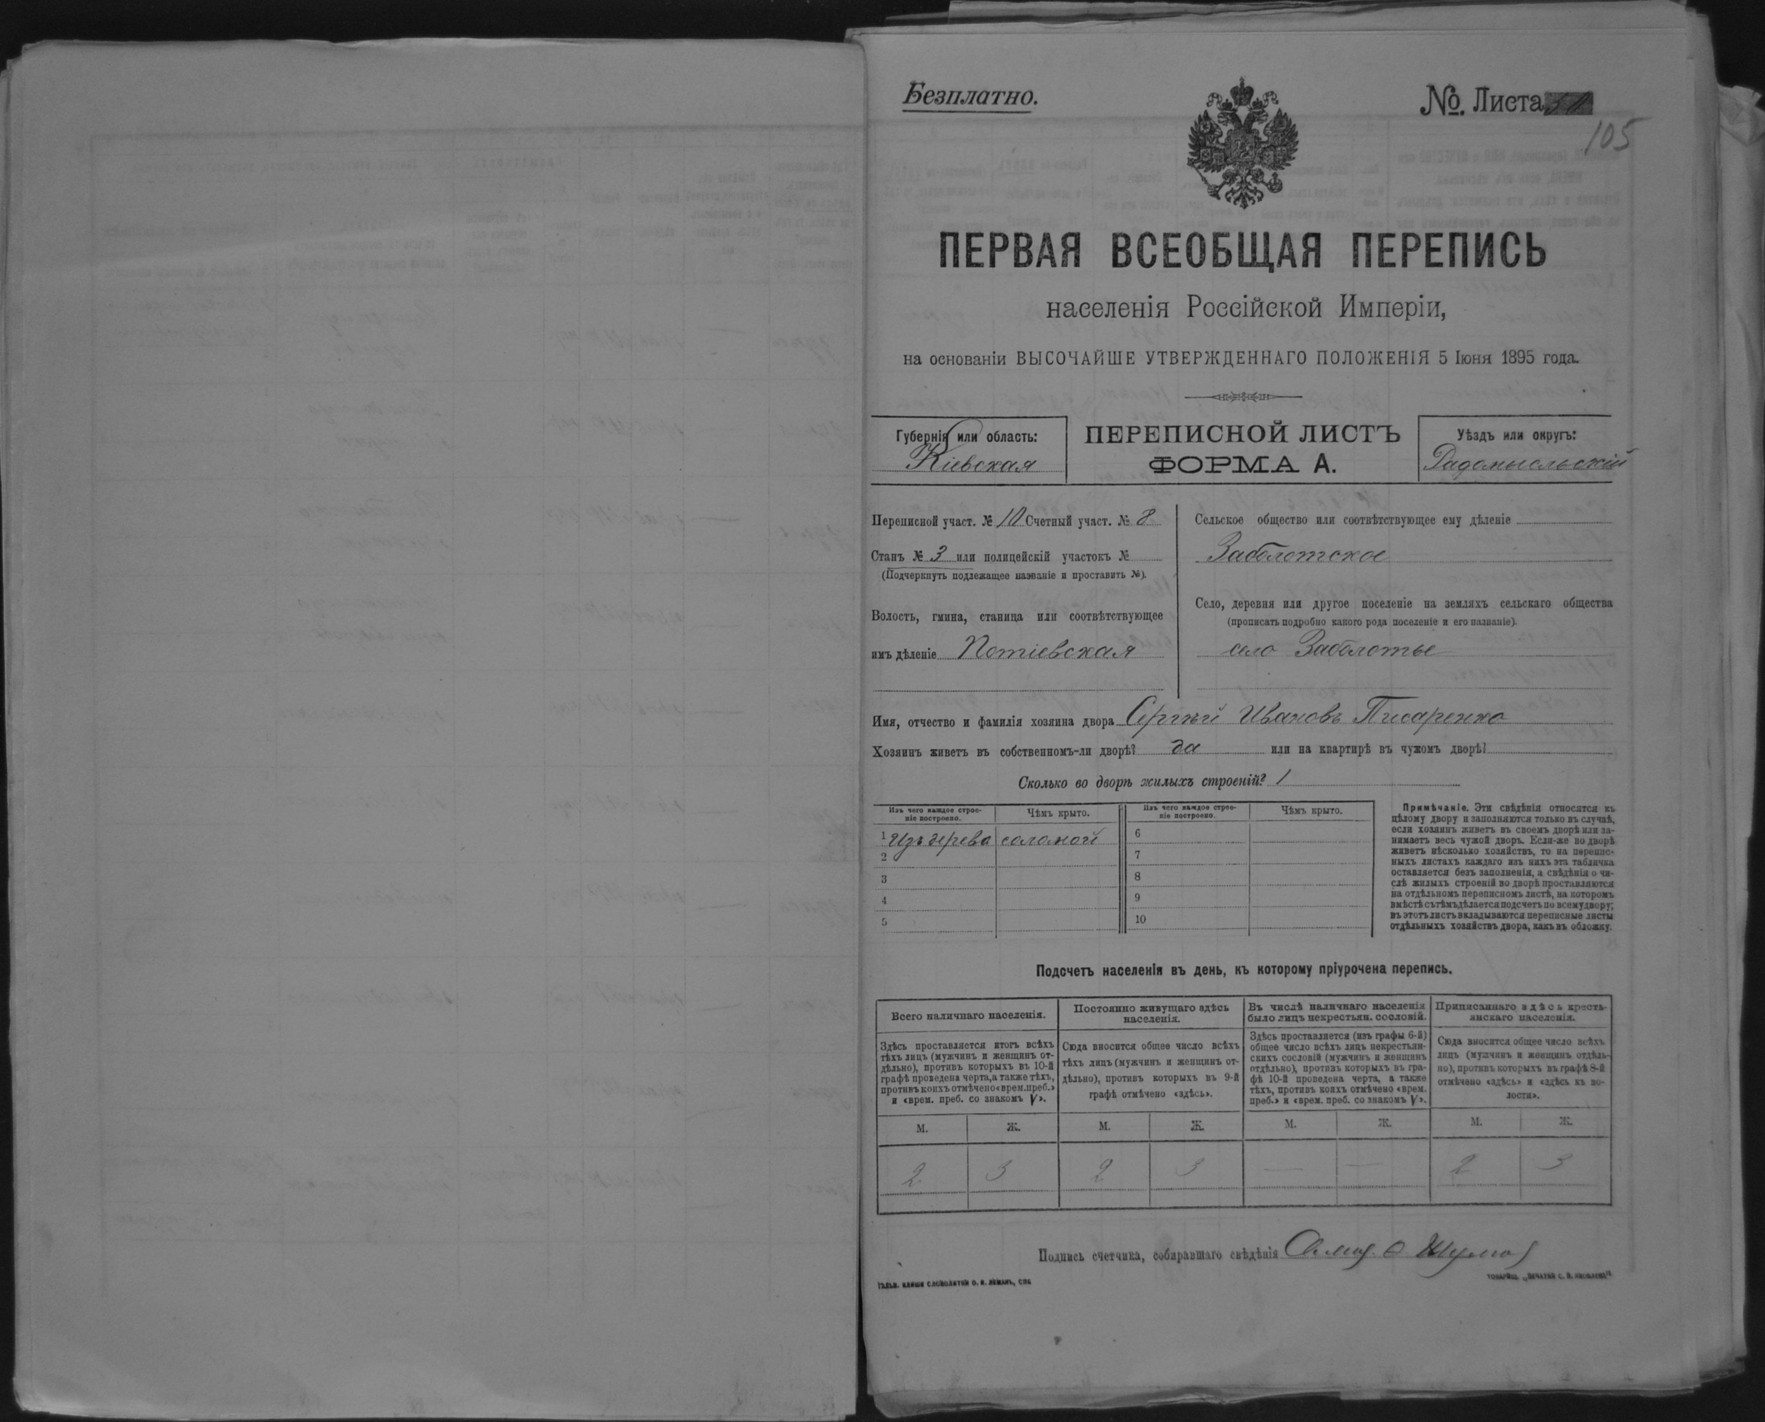 Безплатно.
№. Листа
105
ПЕРВАЯ ВСЕОБЩАЯ ПЕРЕПИСЬ
населенія Россійской Имперіи,
на основаніи ВЫСОЧАЙШЕ УТВЕРЖДЕННАГО ПОЛОЖЕНІЯ 5 Іюня 1895 года.
Губернія или область:
Кіевская
ПЕРЕПИСНОЙ ЛИСТЪ
ФОРМА А.
Уѣздъ или округъ:
Радомысльскій
Переписной участ. № 10 Счетный участ. № 8
Станъ № 3 или полицейскій участокъ №
(Подчеркнуть подлежащее названіе и проставить №).
Волость, гмина, станица или соотвѣтствующее
имъ дѣленіе Потіевская
Сельское общество или соотвѣтствующее ему дѣленіе
Заболотское
Село, деревня или другое поселеніе на земляхъ сельскаго общества
(прописать подробно какого рода поселеніе и его названіе).
село Заболотье
Имя, отчество и фамилія хозяина двора Сергѣй Ивановъ Писаренко
Хозяинъ живетъ въ собственномъ-ли дворѣ? да или на квартирѣ въ чужомъ дворѣ?
Сколько во дворѣ жилыхъ строеній? 1
Изъ чего каждое строе-
ніе построено.
Чѣмъ крыто.
1 Изъ дерева соломой
2
3
4
5
Изъ чего каждое строе-
ніе построено.
Чѣмъ крыто.
6
7
8
9
10
Примѣчаніе. Эти свѣдѣнія относятся къ
цѣлому двору и заполняются только въ случаѣ,
если хозяинъ живетъ въ своемъ дворѣ или за-
нимаетъ весь чужой дворъ. Если-же во дворѣ
живетъ нѣсколько хозяйствъ, то на перепис-
ныхъ листахъ каждаго изъ нихъ эта табличка
оставляется безъ заполненія, а свѣдѣнія о чи-
слѣ жилыхъ строеній во дворѣ проставляются
на отдѣльномъ переписномъ листѣ, на которомъ
вмѣстѣ съ тѣмъ дѣлается подсчетъ по всему двору;
въ этотъ листъ вкладываются переписные листы
отдѣльныхъ хозяйствъ двора, какъ въ обложку.
Подсчетъ населенія въ день, къ которому пріурочена перепись.
Всего наличнаго населенія.
Здѣсь проставляется итогъ всѣхъ
тѣхъ лицъ (мужчинъ и женщинъ от-
дѣльно), противъ которыхъ въ 10-й
графѣ проведена черта, а также тѣхъ,
противъ коихъ отмѣчено «врем. преб.»
и «врем. преб. со знакомъ V».
М. Ж.
2 3
Постоянно живущаго здѣсь
населенія.
Сюда вносится общее число всѣхъ
тѣхъ лицъ (мужчинъ и женщинъ от-
дѣльно), противъ которыхъ въ 9-й
графѣ отмѣчено «здѣсь».
М. Ж.
2 3
Въ числѣ наличнаго населенія
было лицъ некрестьян. сословій.
Здѣсь проставляется (изъ графы 6-й)
общее число всѣхъ лицъ некрестьян-
скихъ сословій (мужчинъ и женщинъ
отдѣльно), противъ которыхъ въ гра-
фѣ 10-й проведена черта, а также
тѣхъ, противъ коихъ отмѣчено «врем.
преб.» и «врем. преб. со знакомъ V».
М. Ж.
— —
Приписаннаго здѣсь кресть-
янскаго населенія.
Сюда вносится общее число всѣхъ
лицъ (мужчинъ и женщинъ отдѣль-
но), противъ которыхъ въ графѣ 8-й
отмѣчено «здѣсь» и «здѣсь въ во-
лости».
М. Ж.
2 3
Подпись счетчика, собиравшаго свѣдѣнія